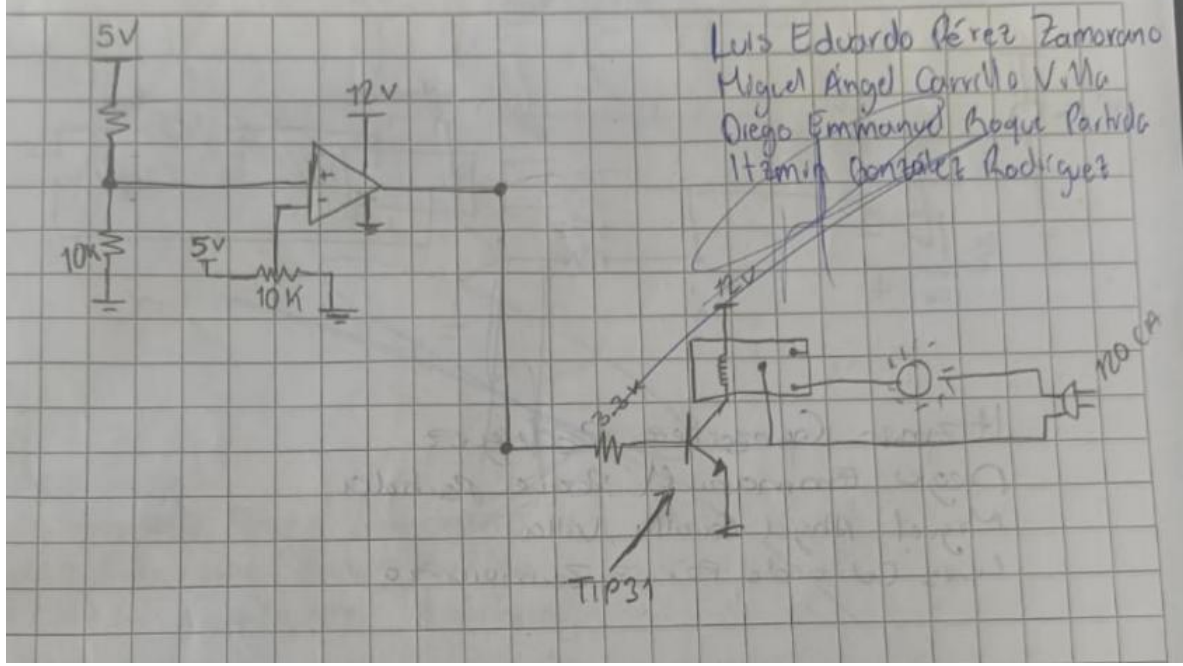 5V
12V
Luis Eduardo Pérez Zamorano
Miguel Ángel Carrillo Villa
Diego Emmanuel Roque Partida
Itzmin González Rodríguez
+
-
10K
5V
10K
12V
3.3K
120 CA
TIP31